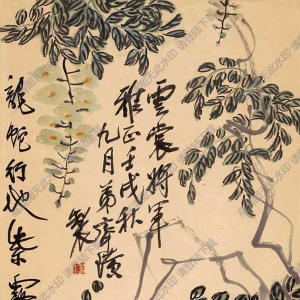 雲裳將軍
雅正壬戌秋
九月弟齊璜
製
龍蛇行地紫霧